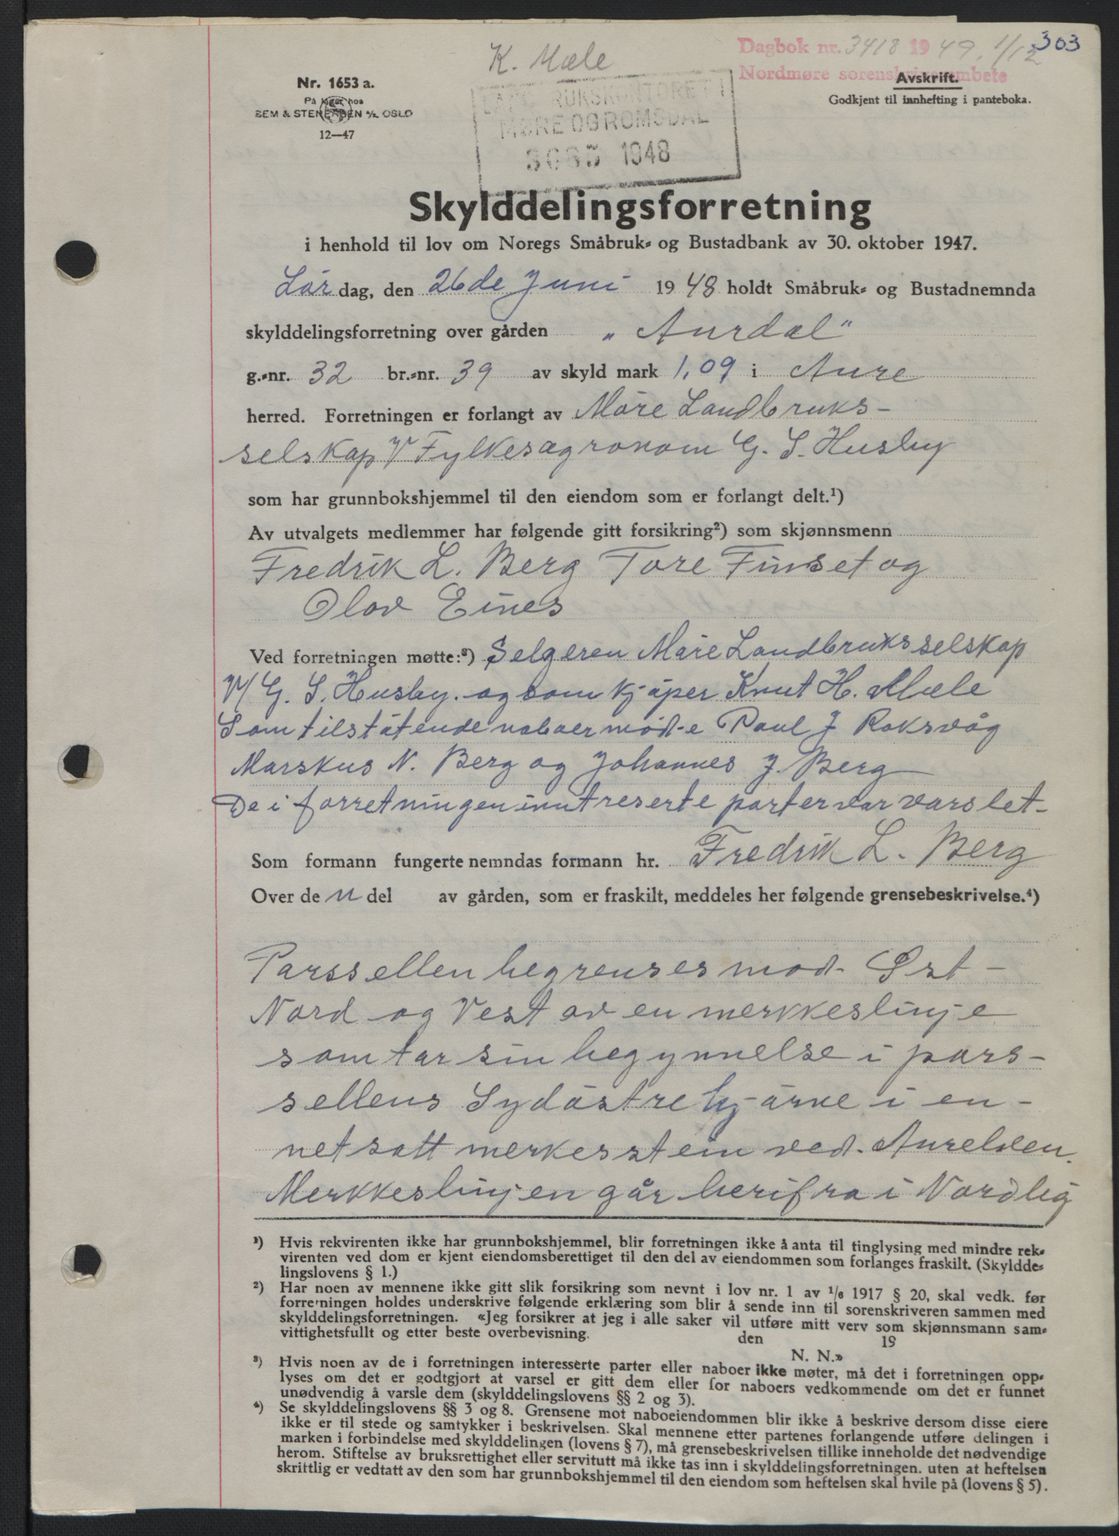 303
K. Mæle
Dagbok nr. 3418 1949. 1/12
Nordmøre sorenskriverembete
Nr. 1653 a.
På lager hos
SEM & STENERSEN A/S OSLO
12—47
Avskrift.
Godkjent til innhefting i panteboka.
LANDBRUKSKONTORET I
MØRE OG ROMSDAL
1948
Skylddelingsforretning
i henhold til lov om Noregs Småbruk- og Bustadbank av 30. oktober 1947.
Lør dag, den 26de Juni 1948 holdt Småbruk- og Bustadnemnda
skylddelingsforretning over gården „Aurdal“
g.-nr. 32 br.-nr. 39 av skyld mark 1,09 i Aure
herred. Forretningen er forlangt av Møre Landbruks-
selskap v/ Fylkesagronom G. S. Husby
som har grunnbokshjemmel til den eiendom som er forlangt delt.¹)
Av utvalgets medlemmer har følgende gitt forsikring²) som skjønnsmenn
Fredrik L. Berg Tore Finset og
Olav Eines
Ved forretningen møtte:³) Selgeren Møre Landbruksselskap
v/ G. S. Husby. og som kjøper Knut H. Mæle
Som tilstøtende naboer mødte Paul J Roksvåg
Marskus N. Berg og Johannes J. Berg
De i forretningen inntreserte parter var varslet-
Som formann fungerte nemndas formann hr. Fredrik L. Berg
Over de n del av gården, som er fraskilt, meddeles her følgende grensebeskrivelse.⁴)
Parssellen begrenses mod- Øst-
Nord og Vest av en merkkeslinje
som tar sin begynnelse i pars-
sellens Sydøstre hjørne i en-
netsatt merkesstein ved. Aurelven.
Merkkeslinjen går herifra i Nordlig
¹) Hvis rekvirenten ikke har grunnbokshjemmel, blir forretningen ikke å anta til tinglysing med mindre rek-
virenten ved dom er kjent eiendomsberettiget til den del av eiendommen som forlanges fraskilt. (Skyldde-
lingslovens § 1.)
²) Har noen av mennene ikke gitt slik forsikring som nevnt i lov nr. 1 av 1/6 1917 § 20, skal vedk. før
forretningen holdes underskrive følgende erklæring som blir å sende inn til sorenskriveren sammen med
skylddelingsforretningen. «Jeg forsikrer at jeg i alle saker vil utføre mitt verv som skjønnsmann sam-
vittighetsfullt og etter beste overbevisning.
den 19
N. N.»
³) Hvis noen av de i forretningen interesserte parter eller naboer ikke møter, må det i forretningen opp-
lyses om det er godtgjort at varsel er gitt dem eller for naboers vedkommende om det er funnet
unødvendig å varsle dem (skylddelingslovens §§ 2 og 3).
⁴) Se skylddelingslovens §§ 3 og 8. Grensene mot naboeiendommen blir ikke å beskrive dersom disse eiere
ikke er til stede og samtykker i beskrivelsen. Skal mennene etter partenes forlangende utføre delingen i
marken i forbindelse med skylddelingen (lovens § 7), må grensebeskrivelsen tillike inneholde det nødvendige
herom. Stiftelse av bruksrettighet eller servitutt må ikke tas inn i skylddelingsforretningen. uten at heftelsen
skrittlig er vedtatt av den som har grunnbokshjemmel til den eiendom som heftelsen skal hvile på (lovens § 5).